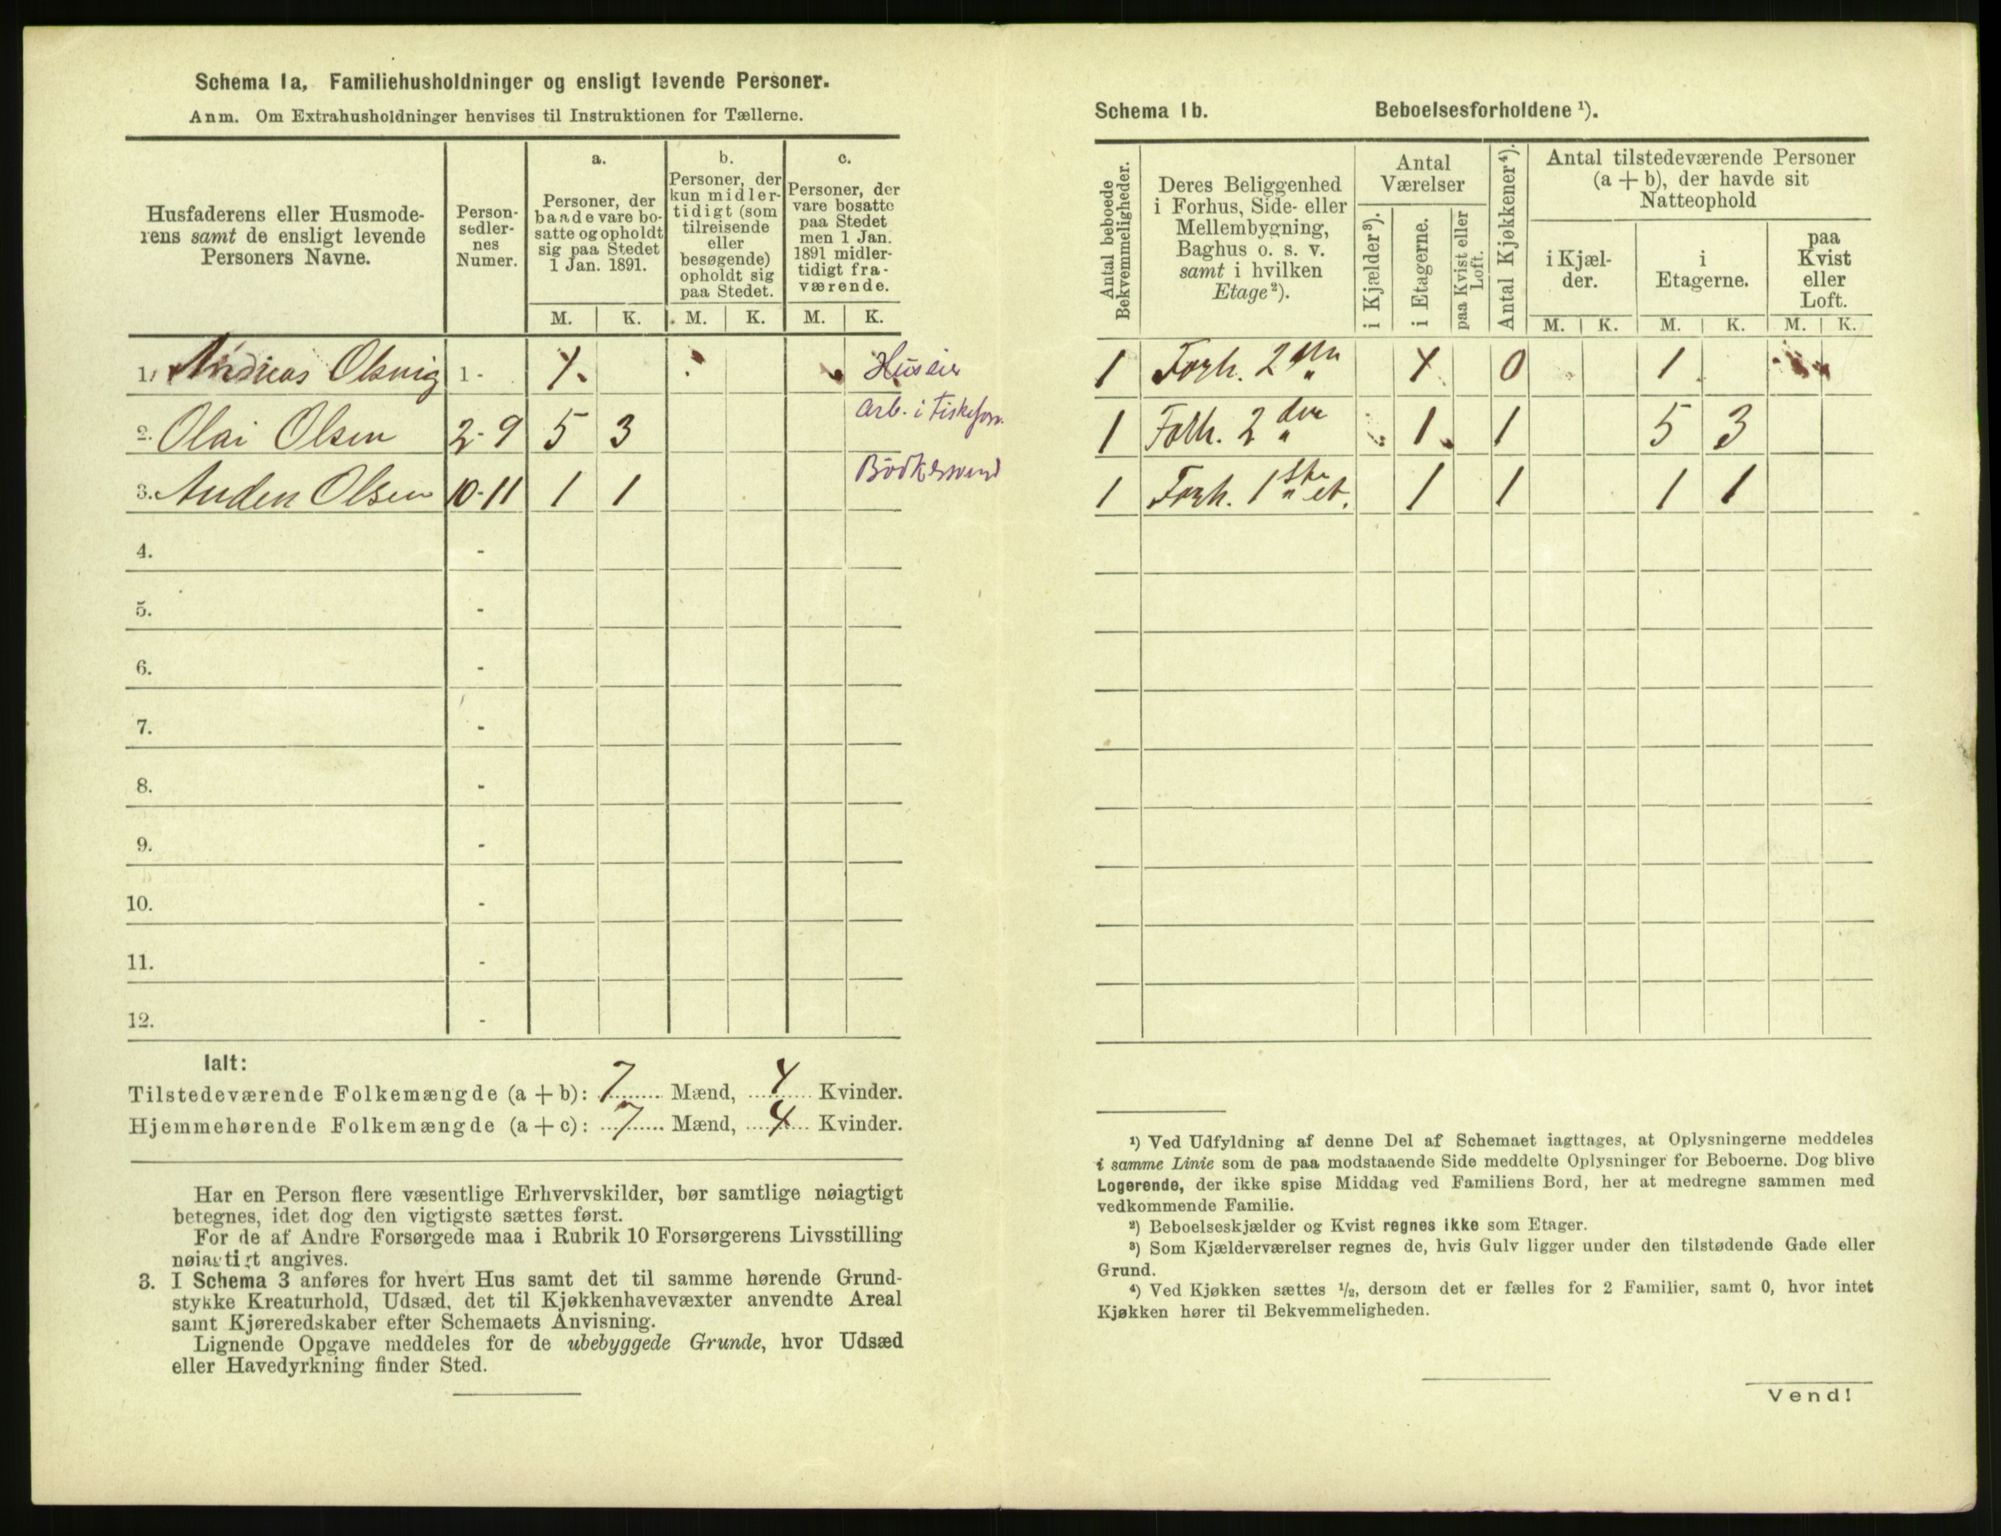 Schema 1a, Familiehusholdninger og ensligt levende Personer.
Anm. Om Extrahusholdninger henvises til Instruktionen for Tællerne.
Husfaderens eller Husmode-
rens samt de ensligt levende
Personers Navne.
Person-
sedler-
nes
Numer.
a.
Personer, der
baade vare bo-
satte og opholdt
sig paa Stedet
1 Jan. 1891.
b.
Personer, der
kun midler-
tidigt (som
tilreisende
eller
besøgende)
opholdt sig
paa Stedet.
c.
Personer, der
vare bosatte
paa Stedet
men 1 Jan.
1891 midler-
tidigt fra-
værende.
M. K. M. K. M. K.
1. Andreas Olsvig 1 - Huseier
2. Olai Olsen 2-9 5 3 Arb. i
3. Anden Olsen 10-11 1 1 Bødkersvend
4. -
5. -
6. -
7. -
8. -
9. -
10. -
11. -
12. -
Ialt:
Tilstedeværende Folkemængde (a + b): 7 Mænd, 4 Kvinder.
Hjemmehørende Folkemængde (a + c): 7 Mænd, 4 Kvinder.
Har en Person flere væsentlige Erhvervskilder, bør samtlige nøiagtigt
betegnes, idet dog den vigtigste sættes først.
For de af Andre Forsørgede maa i Rubrik 10 Forsørgerens Livsstilling
nøiagtigt angives.
3. I Schema 3 anføres for hvert Hus samt det til samme hørende Grund-
stykke Kreaturhold, Udsæd, det til Kjøkkenhavevæxter anvendte Areal
samt Kjøreredskaber efter Schemaets Anvisning.
Lignende Opgave meddeles for de ubebyggede Grunde, hvor Udsæd
eller Havedyrkning finder Sted.
Schema 1b. Beboelsesforholdene ¹).
Antal beboede
Bekvemmeligheder.
Deres Beliggenhed
i Forhus, Side- eller
Mellembygning,
Baghus o. s. v.
samt i hvilken
Etage²).
Antal
Værelser
i Kjælder³).
i Etagerne.
paa Kvist eller
Loft.
Antal Kjøkkener⁴).
Antal tilstedeværende Personer
(a + b), der havde sit
Natteophold
i Kjæl-
der.
i
Etagerne.
paa
Kvist
eller
Loft.
M. K. M. K. M. K.
1 Forh. 2den 4 0 1
1 Forh. 2den 1 1 5 3
1 Forh. 1ste et. 1 1 1 1
¹) Ved Udfyldning af denne Del af Schemaet iagttages, at Oplysningerne meddeles
i samme Linie som de paa modstaaende Side meddelte Oplysninger for Beboerne. Dog blive
Logerende, der ikke spise Middag ved Familiens Bord, her at medregne sammen med
vedkommende Familie.
²) Beboelseskjælder og Kvist regnes ikke som Etager.
³) Som Kjælderværelser regnes de, hvis Gulv ligger under den tilstødende Gade eller
Grund.
⁴) Ved Kjøkken sættes ½, dersom det er fælles for 2 Familier, samt 0, hvor intet
Kjøkken hører til Bekvemmeligheden.
Vend!